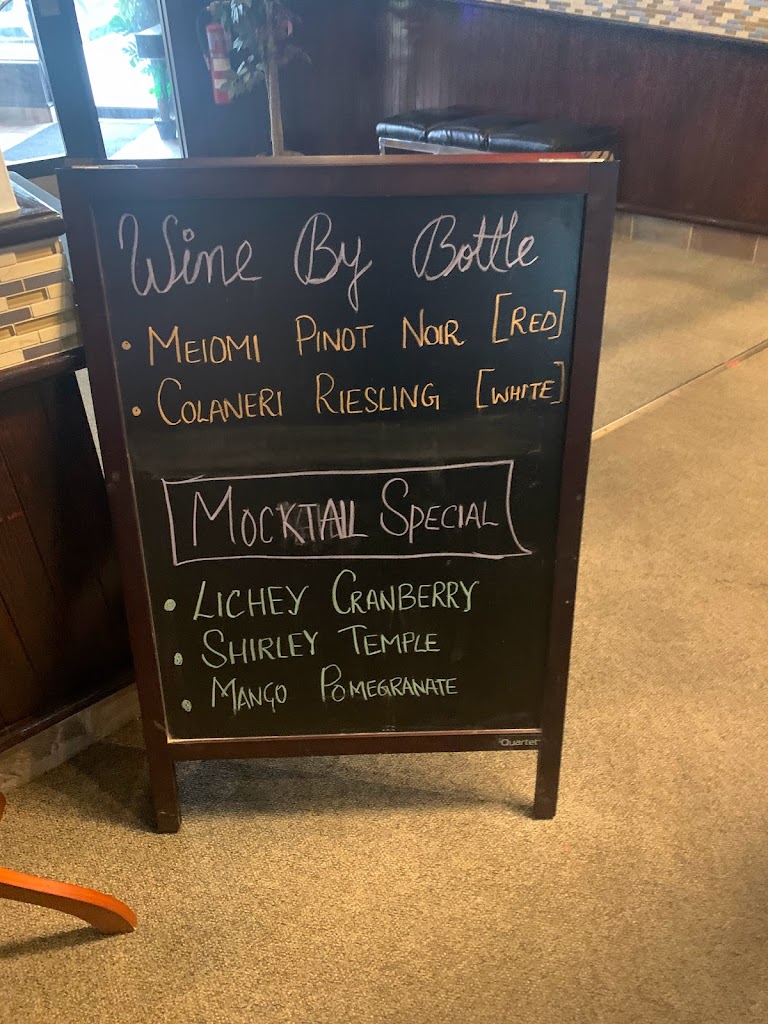 Wine By Bottle
• MEIOMI PINOT NOIR [RED]
• COLANERI RIESLING [WHITE]
MOCKTAIL SPECIAL
• LICHEY CRANBERRY
• SHIRLEY TEMPLE
• MANGO POMEGRANATE
Quartet